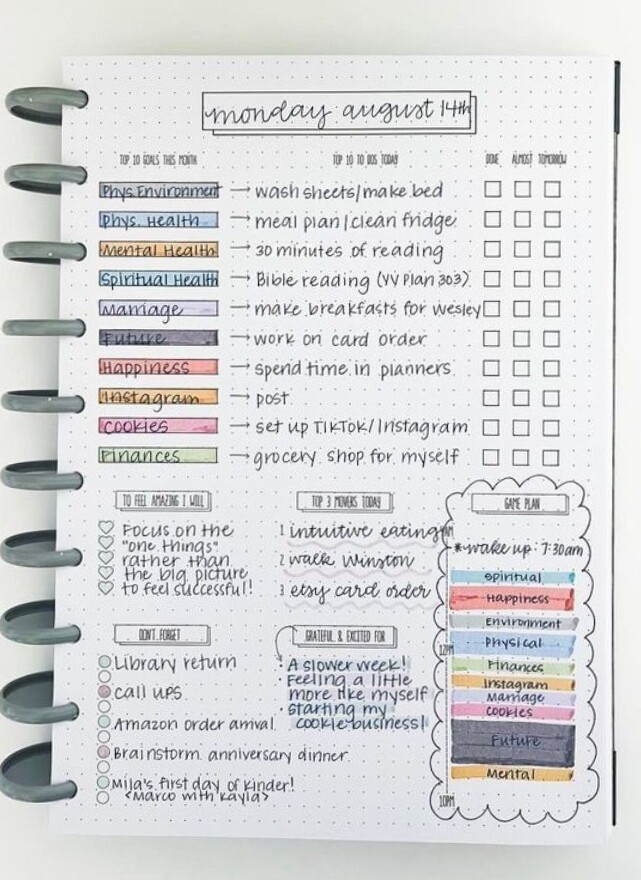 monday august 14th
TOP 10 GOALS THIS MONTH TOP 10 TO DOS TODAY DONE ALMOST TOMORROW
Phys. Environment → wash sheets/make bed
Phys. Health → meal plan/clean fridge
Mental Health → 30 minutes of reading
Spiritual Health → Bible reading (YV Plan 303)
Marriage → make breakfasts for Wesley
Future → work on card order
Happiness → spend time in planners
Instagram → post
Cookies → set up TikTok/Instagram
Finances → grocery shop for myself
TO FEEL AMAZING I WILL
Focus on the
"one things"
rather than
the big picture
to feel successful!
TOP 3 MOVERS TODAY
1 intuitive eating
2 walk Winston
3 etsy card order
GAME PLAN
*wake up: 7:30am
Spiritual
Happiness
Environment
Physical
12PM
Finances
Instagram
Marriage
Cookies
Future
Mental
10PM
DON'T FORGET
Library return
call UPS
Amazon order arrival
Brainstorm anniversary dinner
Mila's first day of kinder!
<Marco with Kayla>
GRATEFUL & EXCITED FOR
A slower week!
Feeling a little
more like myself
starting my
cookie business!